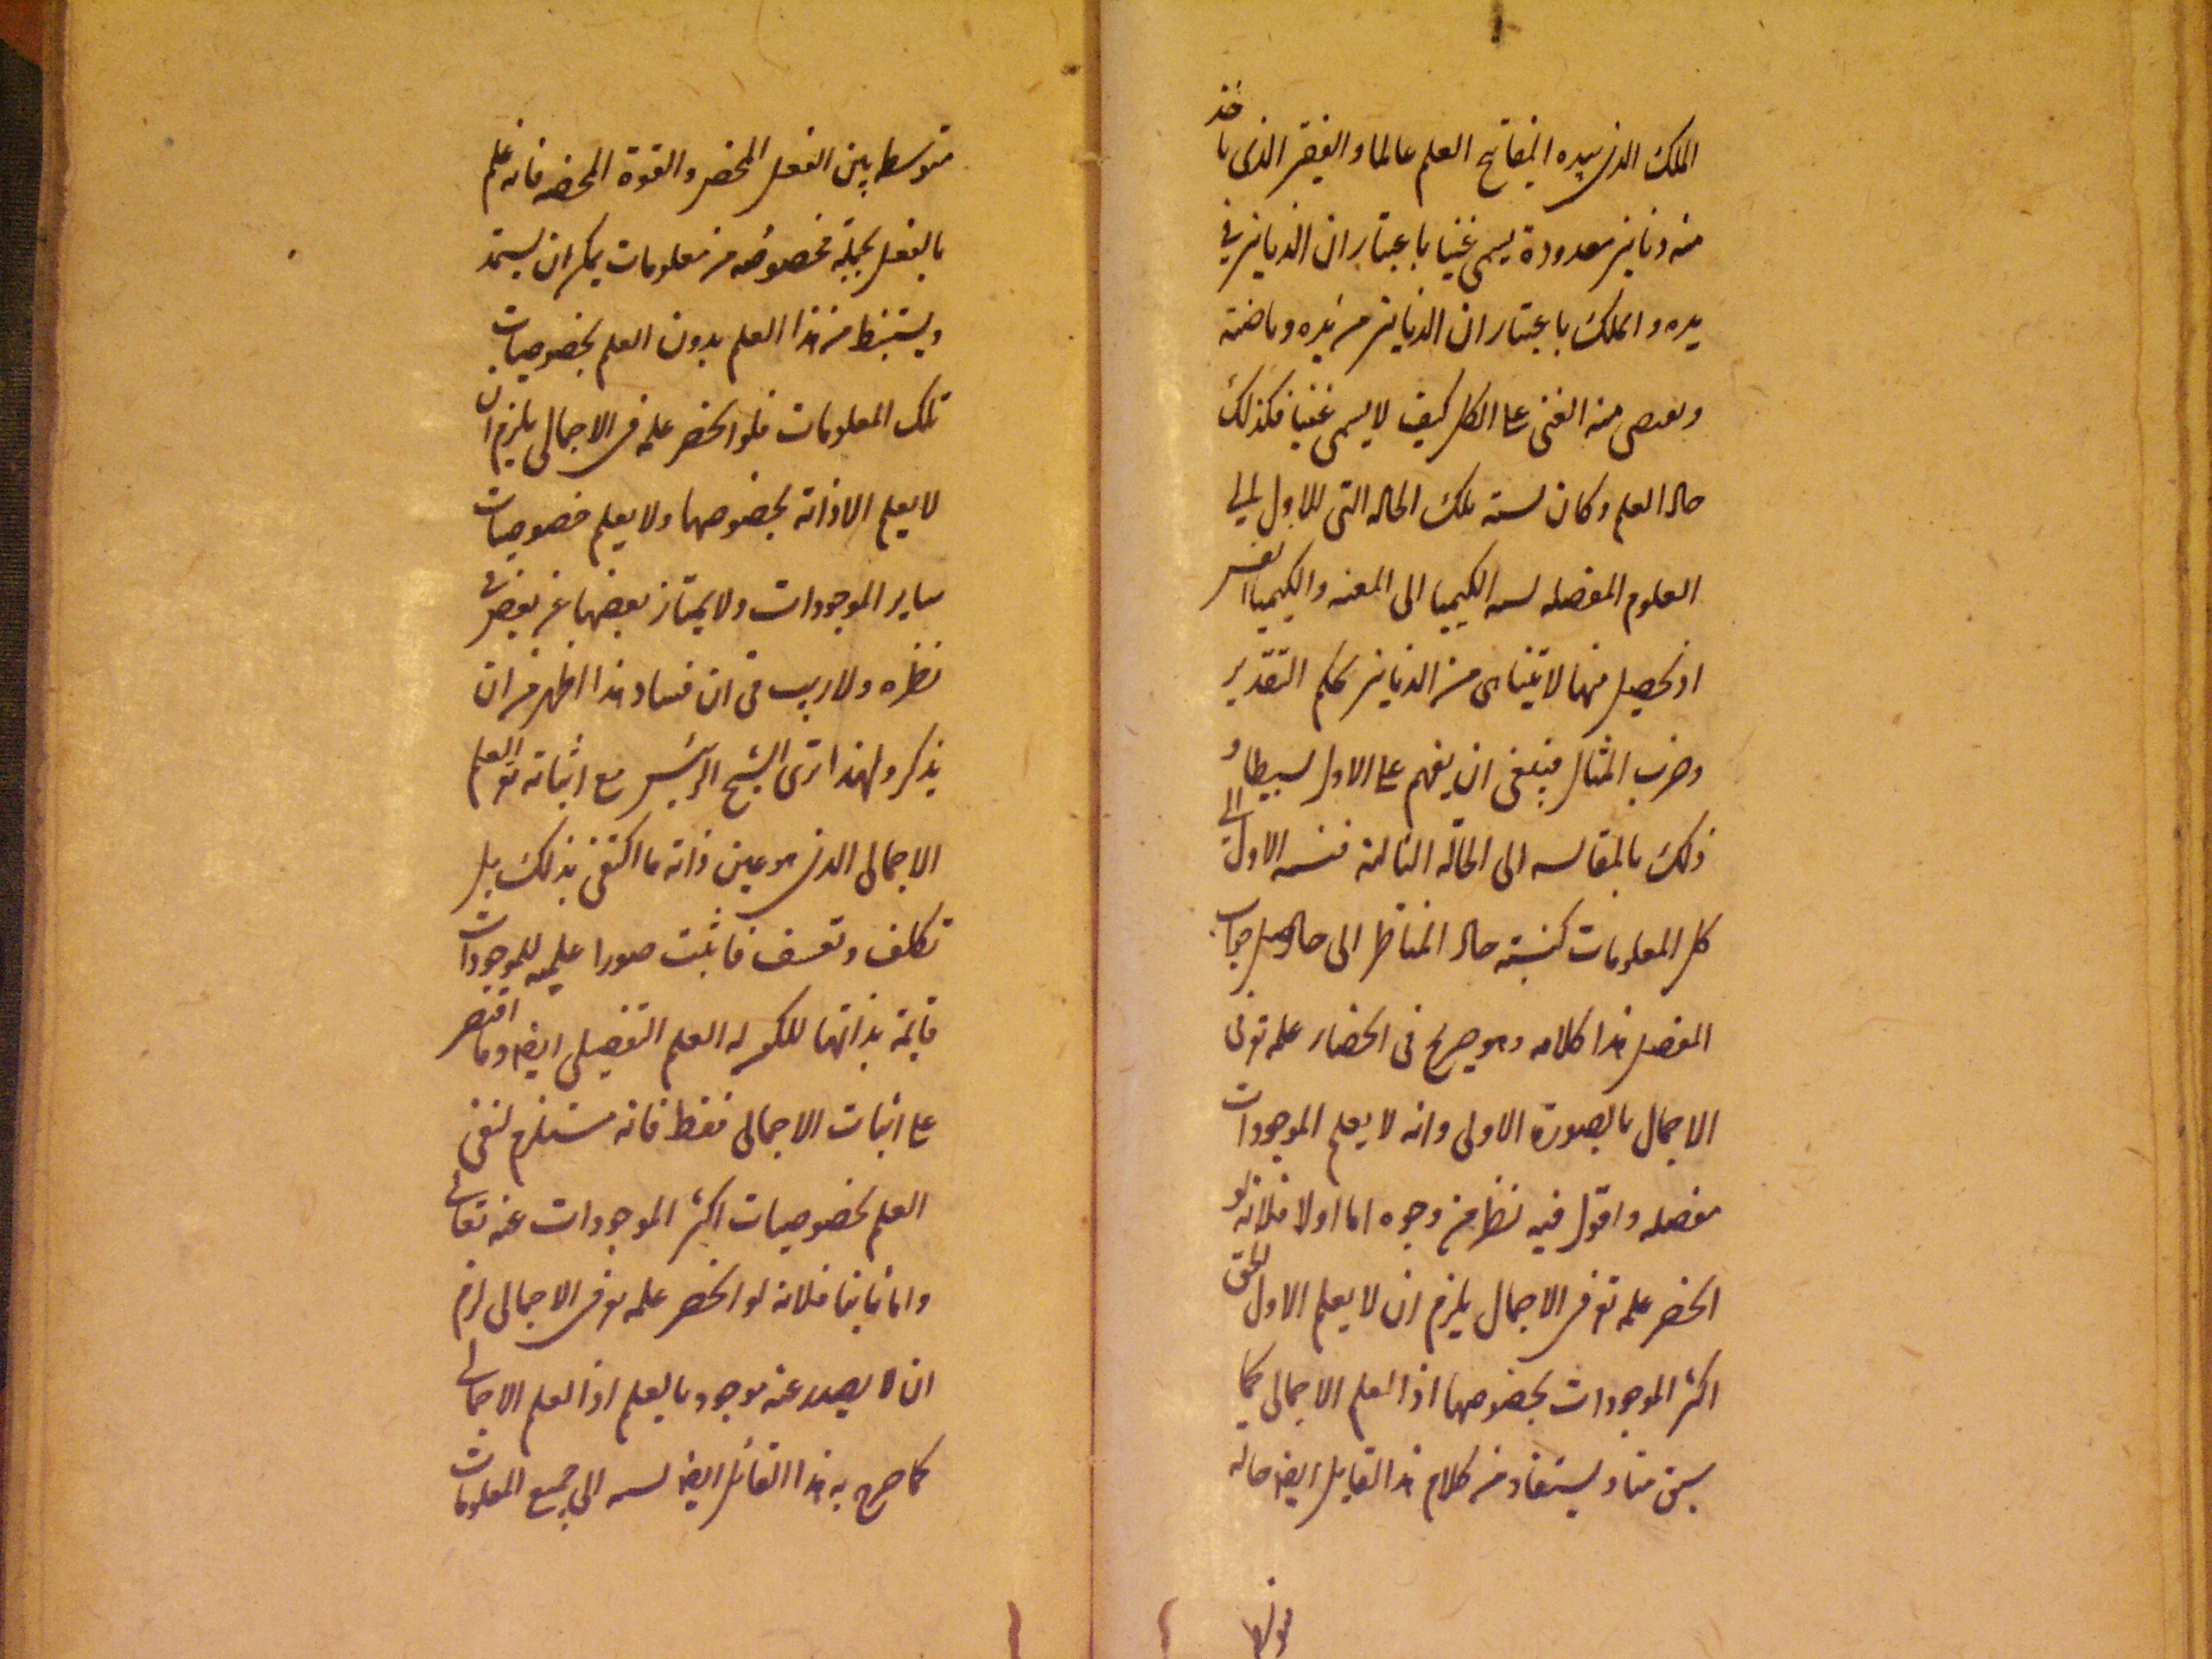 الملك الذى بيده المفاتيح العلم عالما والفقير الذى ياخذ
منه دنانير معدودة يسمى غنيا باعتبار ان الدنانير فى
يده والملك باعتبار ان الدنانير من يده وفايضة
منه الغنى على الكل كيف لا يسمى غنيا فكذلك
حال العلم وكان نسبة تلك الحالة التى للاول الى
العلوم المفصلة نسبة الكيميا الى المعينة والكيميا انفس
اذ تحصيل منها لا يتناهى من الدنانير بحكم التقدير
وضرب المثال فينبغى ان يفهم على الاول بسيطا و
ذلك بالمقايسة الى الحالة الثالثة فنسبة الاول الى
كل المعلومات كنسبة حال المناظر الى حال
المفصل هذا كلامه وهو صريح فى انحصار علمه تع فى
الاجمال بالصورة الاولى وانه لا يعلم الموجودات
مفصلة واقول فيه نظر من وجوه اما اولا فلانه لو
انحصر علمه تع فى الاجمال يلزم ان لا يعلم الاول الحق
اكثر الموجودات بخصوصها اذ العلم الاجمالى كما
سبق منا ويستفاد من كلام هذا القايل ايضا حالة
متوسطة بين الفعل المحض والقوة المحضة فانه علم
بالفعل بجملة مخصوصة من معلومات يمكن ان يستمد
ويستنبط من هذا العلم بدون العلم بخصوصيات
تلك المعلومات فلو انحصر علمه فى الاجمالى يلزم ان
لا يعلم الا ذاته بخصوصها ولا يعلم خصوصيات
ساير الموجودات ولا يمتاز بعضها عن بعض فى
نظره ولا ريب فى ان فساد هذا اظهر من ان
يذكر ولهذا ترى الشيخ الرئيس مع اثباته تع العلم
الاجمالى الذى هو عين ذاته ما اكتفى بذلك بل
تكلف وتعسف فاثبت صورا علمية للموجودات
قايمة بذاتها ليكون له العلم التفصيلى ايضا وما اقتصر
على اثبات الاجمالى فقط فانه مستلزم لنفى
العلم بخصوصيات اكثر الموجودات عنه تعالى
واما ثانيا فلانه لو انحصر علمه تع فى الاجمالى لزم
ان لا يصدر عنه موجود بالعلم اذ العلم الاجمالى
كما صرح به هذا القائل ايضا نسبته الى جميع المعلومات